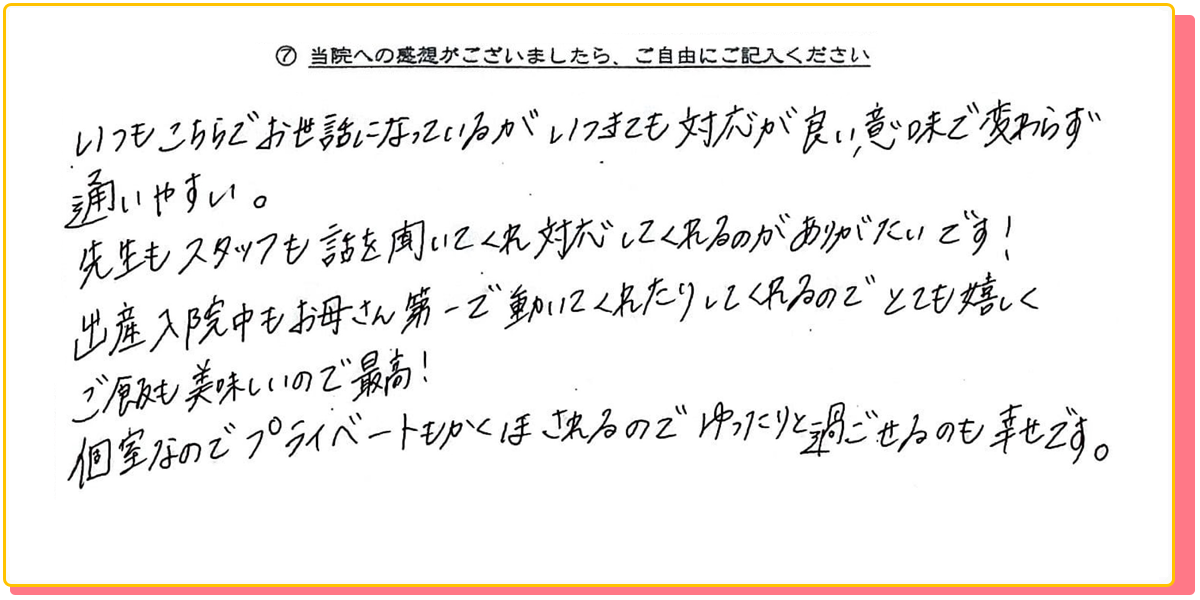 ⑦ 当院への感想がございましたら、ご自由にご記入ください
いつもこちらでお世話になっているがいつきても対応が良い、意味で変わらず
通いやすい。
先生もスタッフも話を聞いてくれ対応してくれるのがありがたいです!
出産入院中もお母さん第一で動いてくれたりしてくれるのでとても嬉しく
ご飯も美味しいので最高!
個室なのでプライベートもかくほされるのでゆったりと過ごせるのも幸せです。